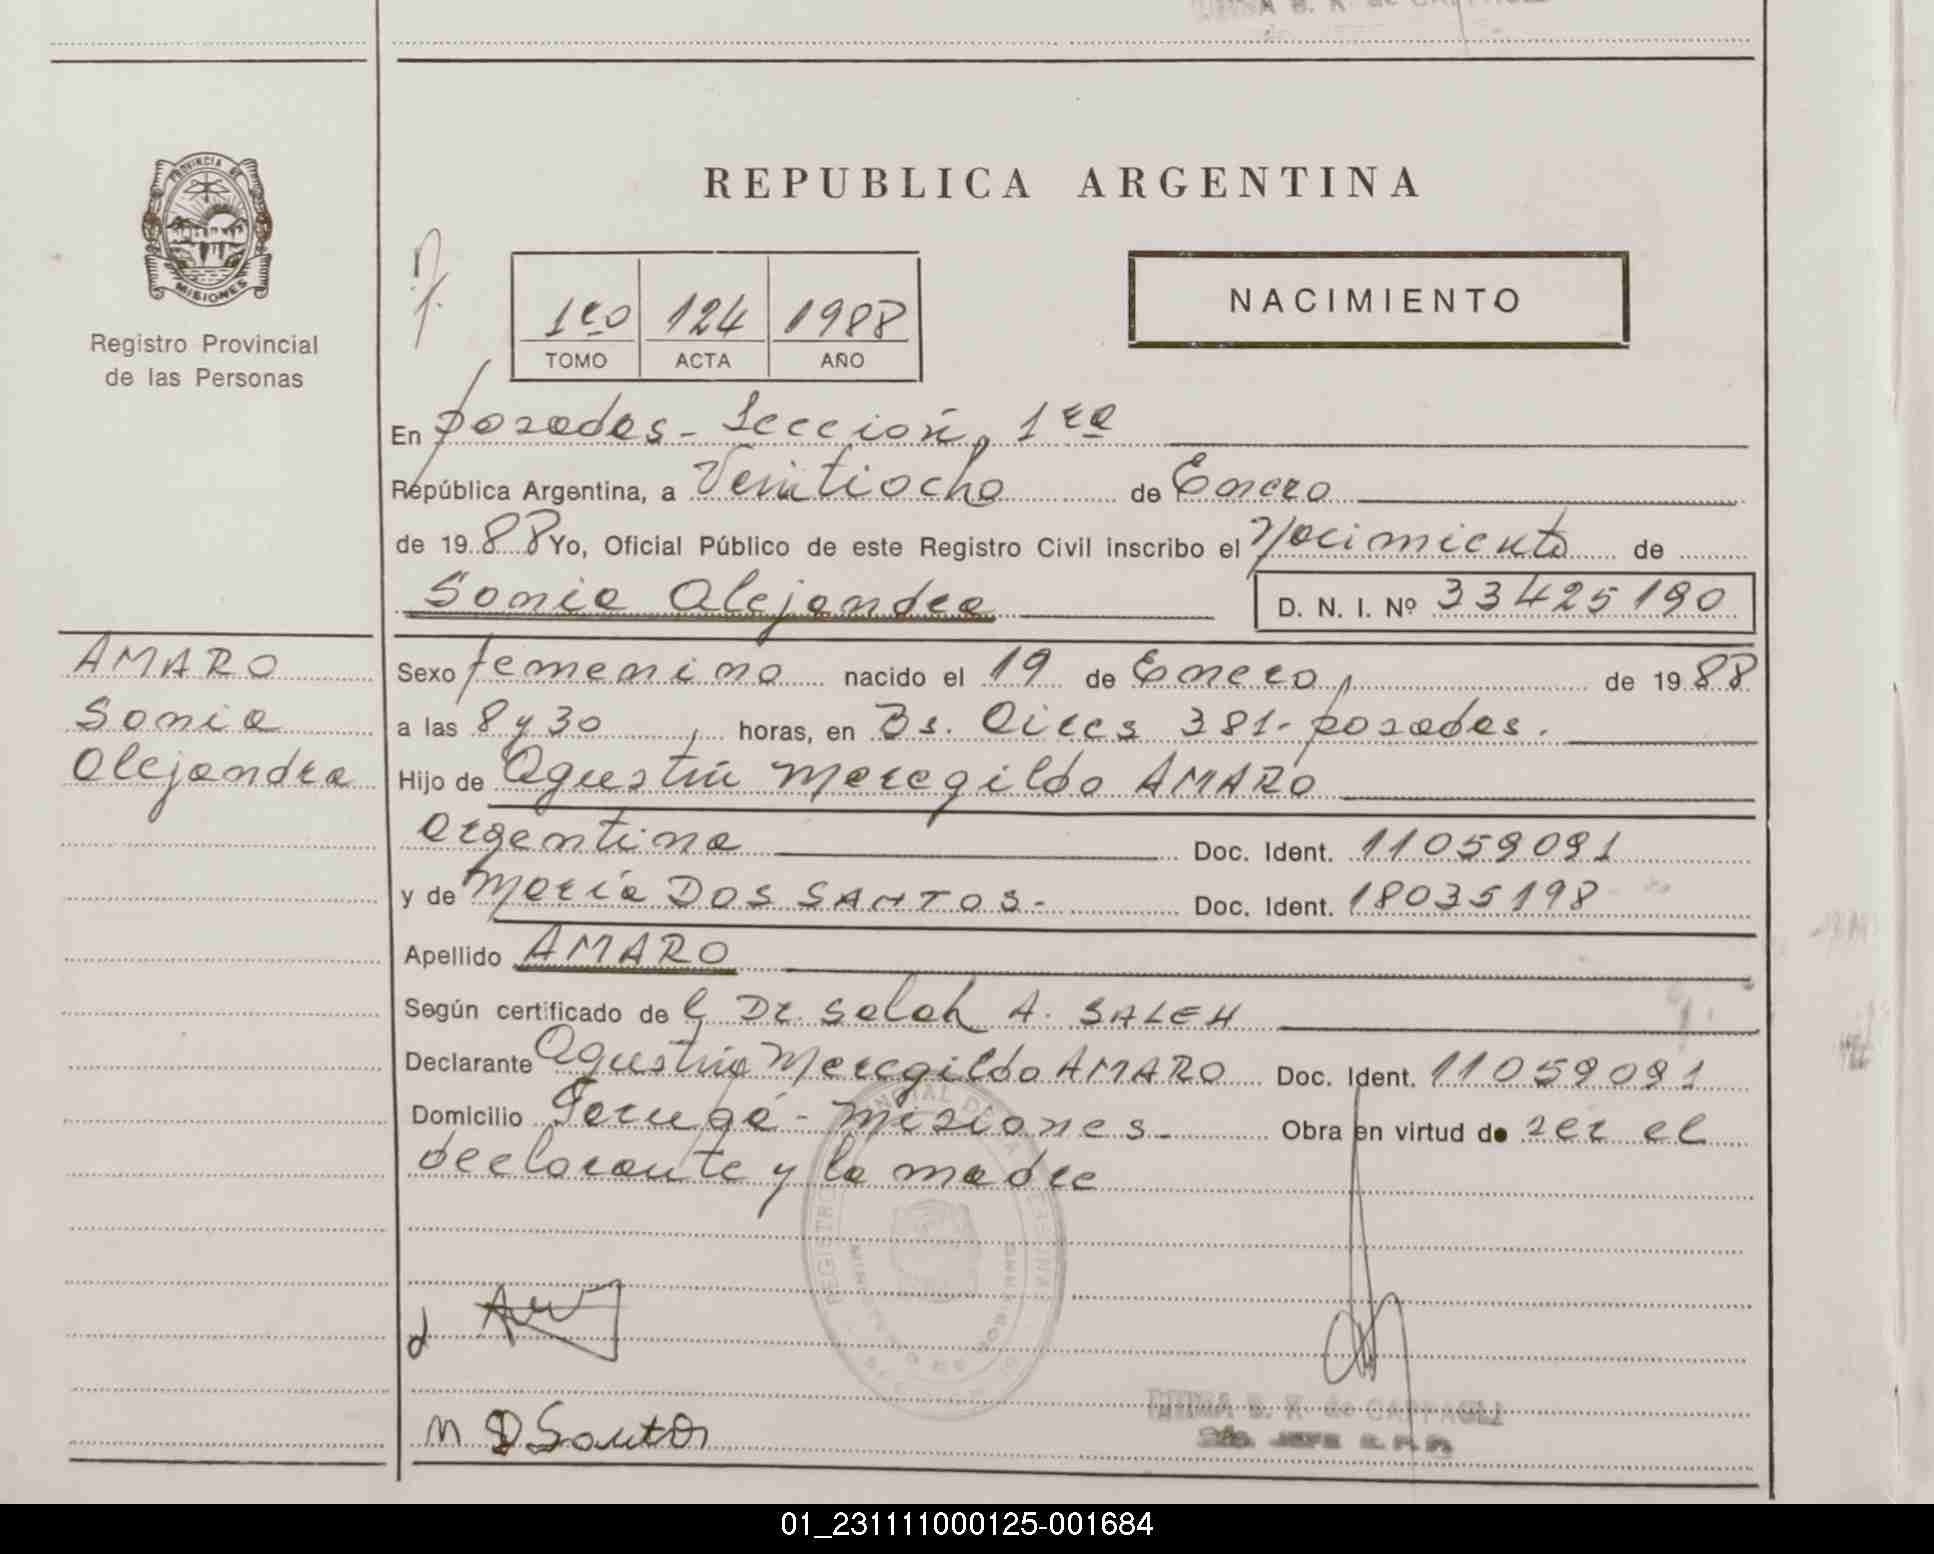 REPUBLICA ARGENTINA
PROVINCIA DE
MISIONES
Registro Provincial
de las Personas
1ro 124 1988
TOMO ACTA AÑO
NACIMIENTO
En Posadas - Sección, 1ra
República Argentina, a Veintiocho de Enero
de 1988 Yo, Oficial Público de este Registro Civil inscribo el Nacimiento de
Sonia Alejandra D. N. I. Nº 33425190
AMARO
Sonia
Alejandra
Sexo femenino nacido el 19 de Enero, de 1988
a las 8 y 30, horas, en Bs. Aires 381 - posadas.
Hijo de Agustín Meregildo AMARO
argentina Doc. Ident. 11059091
y de María DOS SANTOS - Doc. Ident. 18035198
Apellido AMARO
Según certificado de l Dr. Salah A. SALEH
Declarante Agustín Meregildo AMARO Doc. Ident. 11059091
Domicilio Garupá - Misiones - Obra en virtud de ser el
declarante y la madre
M D Santos
B. K. de
01_231111000125-001684